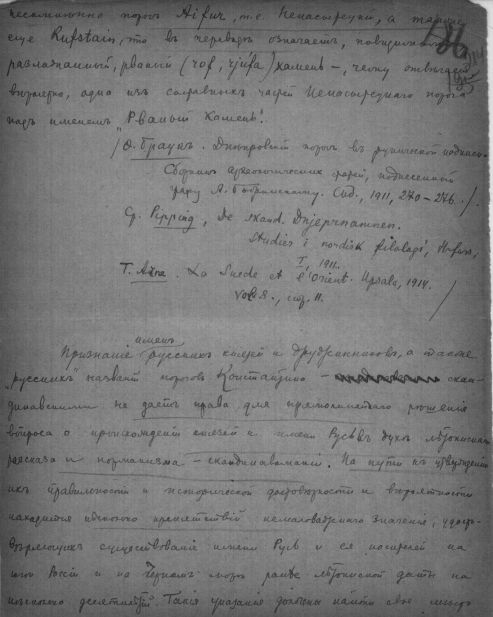 несомненно порогъ Aifur, т.е. Ненасытецкій, а также
еще Rufstain, что въ переводѣ означаетъ,
разломанный, рваный (rof, rjúfa) камень –, чему отвѣчаетъ
вѣроятно, одна изъ составныхъ частей Ненасытецкаго порога
подъ именемъ „Рваный Камень".
/ Ѳ. Браунъ. Днѣпровскій порогъ въ рунической надписи.
Сборникъ археологическихъ статей, поднесенный
графу А. Бобринскому. Спб., 1911, 270–276. /.
Ср. Pipping, De skand. Dnjeprnamnen.
Studier i nordisk filologi, Helsinf.,
I, 1911.
T. Arne. La Suede et l'Orient. Upsala, 1914.
vol 8., стр. 11.
именъ
Признаніе русскихъ князей и дружинниковъ, а также
„русскихъ" названій пороговъ Константина – скан-
динавскими не даетъ права для прямолинейнаго рѣшенія
вопроса о происхожденіи князей и имени Русь въ духѣ лѣтописнаго
разсказа и норманизма – скандинавоманіи. На пути къ утвержденію
ихъ правильности и исторической достовѣрности и вѣроятности
находится нѣсколько препятствій немаловажнаго значенія, удосто-
вѣряющихъ существованіе имени Русь и ея носителей на
югѣ Россіи и на Черномъ морѣ ранѣе лѣтописной даты на
нѣсколько десятилѣтій. Такія указанія должны найти свое мѣсто